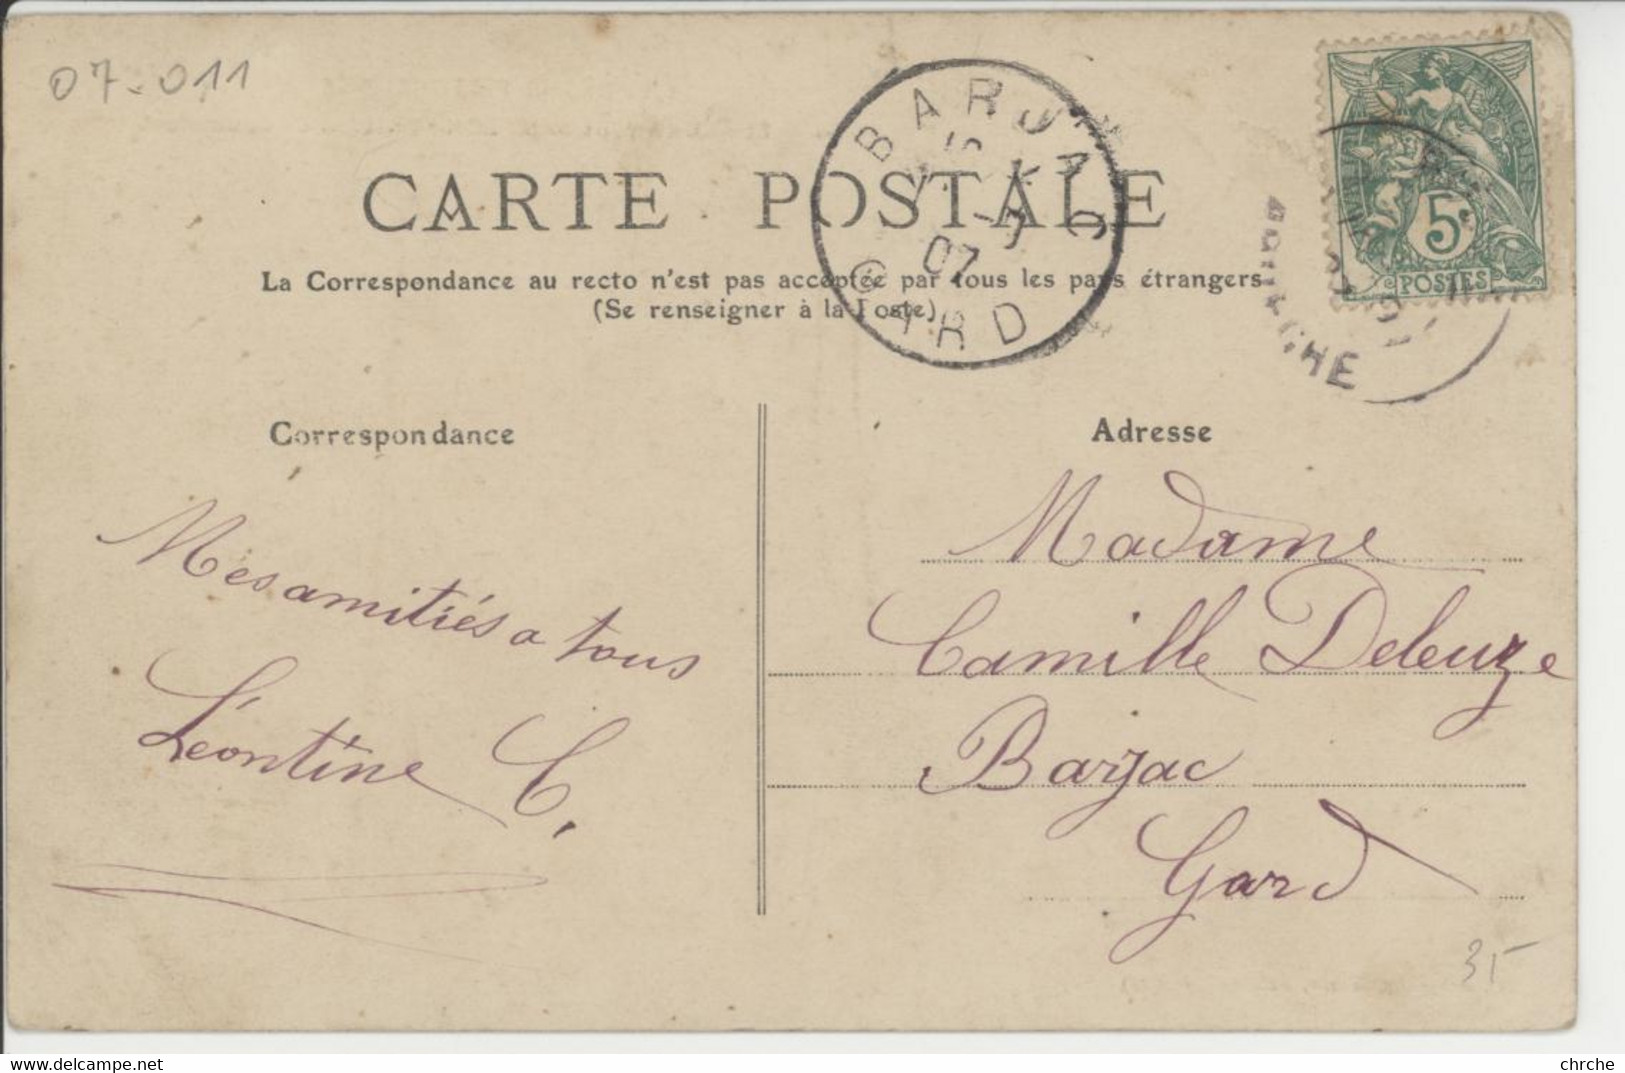 07-011
CARTE POSTALE
La Correspondance au recto n'est pas acceptée par tous les pays étrangers
(Se renseigner à la Poste)
BARJAC
07
GARD
RÉPUBLIQUE FRANÇAISE
5c
POSTES
Correspondance
Adresse
Mes amitiés a tous
Léontine C.
Madame
Camille Deleuze
Barjac
Gard
35
www.delcampe.net
chrche